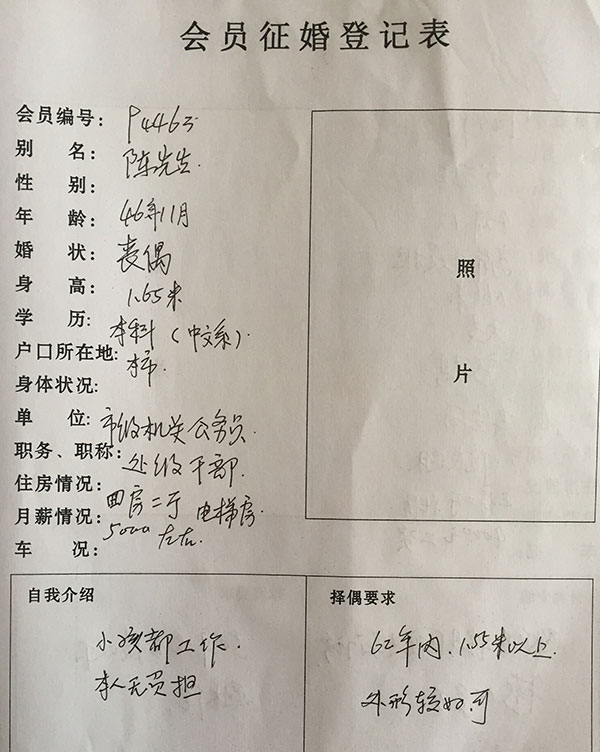 会员征婚登记表
会员编号: P4463
别 名: 陈先生.
性 别:
年 龄: 46年11月
婚 状: 丧偶
身 高: 1.65米
学 历: 本科(中文系).
户口所在地: 本市.
身体状况:
单 位: 市级机关公务员.
职务、职称: 处级干部.
住房情况: 四房二厅 电梯房.
月薪情况: 5000左右.
车 况:
照
片
自我介绍
小孩都工作.
本人无负担
择偶要求
62年内, 1.55米以上
外形较好可